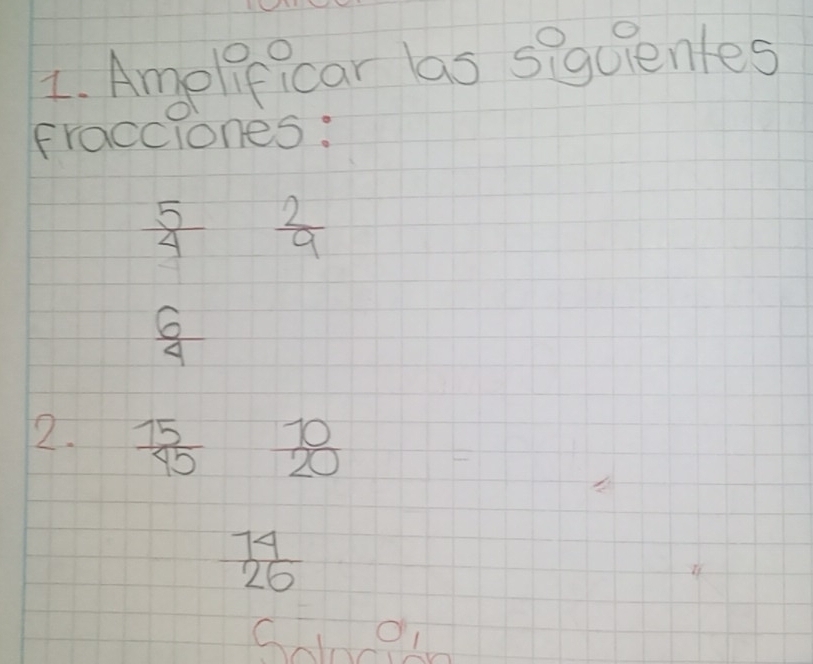 1. Amplificar las siguientes
fracciones:
5/4 2/9
6/4
2. 15/45 10/20
14/26
Solución